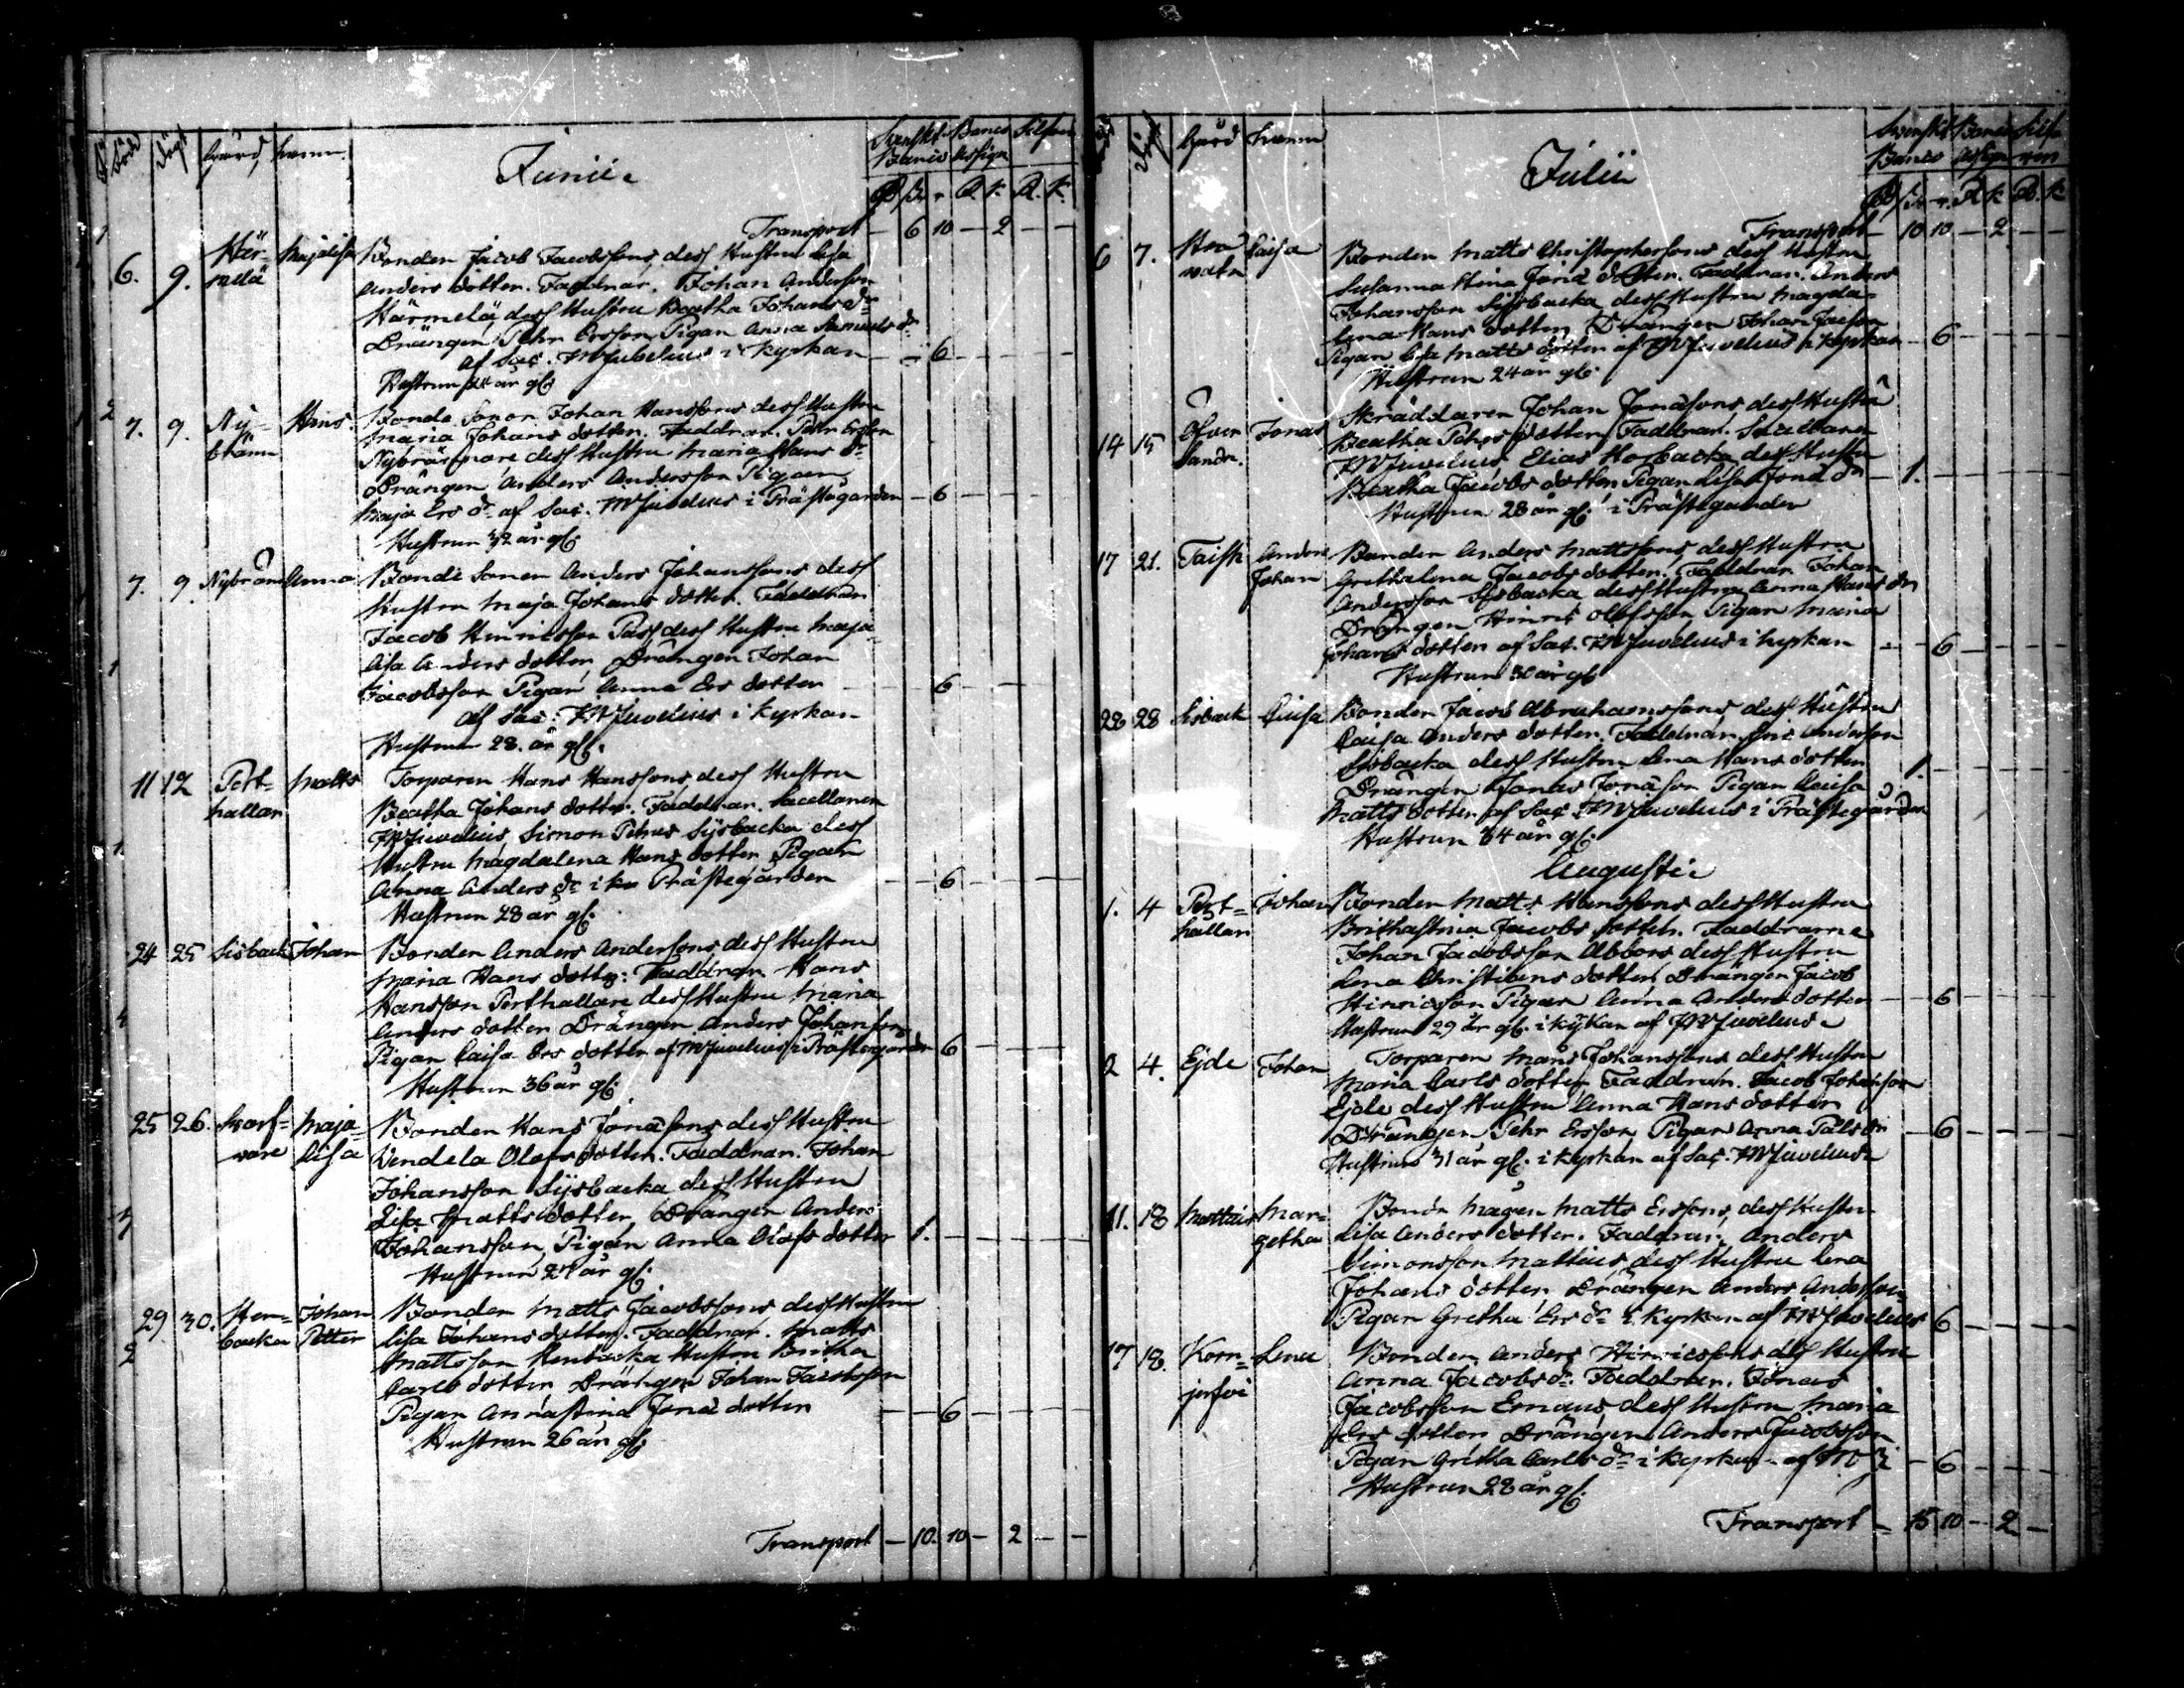 Född Döpt Gård Namn
Junii
Svenskt Banco Silfver
Banco Assign
Transport — 6 10 — 2 — —
6. 9. Här= Majalisa Bonden Jacob Jacobssons dess Hustru Lisa
melä Anders dotter. Faddrar. Johan Andersson
Härmelä dess Hustru Beatha Johans dr
Drängen Pehr Ersson Pigan Anna Samuels dr
af Sac. JWJuvelius i Kyrkan — 6 — — —
Hustrun år gl.
7. 9. Ny= Hins. Bonde Sonen Johan Hanssons dess Hustru
bränn Maria Johans dotter. Faddrar. Pehr Ersson
Nybrännare dess Hustru Maria Hans dr
Drängen Anders Andersson Pigan
Maja Ers dr af Sac. JWJuvelius i Prästegården — 6 — — —
Hustrun 32 år gl.
7. 9 Nybränn Anna Bonde Sonen Anders Johanssons dess
Hustru Maja Johans dotter. Faddrar
Jacob Hinricsson Pass dess Hustru Maja
Lisa Anders dotter, Drängen Johan
Jacobsson Pigan Anna Ers dotter — 6 — — —
af Sac: JWJuvelius i Kyrkan
Hustrun 28. år gl.
11 12 Pert= Matts Torparen Hans Hanssons dess Hustru
hallan Beatha Johans dotter. Faddrar. Sacellanen
JWJuvelius, Simon Pehrs Sysbacka dess
Hustru Magdalena Hans dotter Pigan
Anna Anders dr i Prästegården — 6 — — —
Hustrun 28 år gl.
24 25 Sisback Johan Bonden Anders Anderssons dess Hustru
Maria Hans dotter: Faddrar Hans
Hansson Perthallare dess Hustru Maria
Anders dotter Drängen Anders Johansson
Pigan Caisa Ers dotter af JWJuvelius i Prästegården 6 — — —
Hustrun 36 år gl.
25 26. Svarf= Maja= Bonden Hans Jonassons dess Hustru
vare Lisa Vendela Olofs dotter. Faddrar. Johan
Johansson Sysbacka dess Hustru
Lisa Matts dotter, Drängen Anders
Johansson, Pigan Anna Olofs dotter 1. — — —
Hustrun 24 år gl.
29 30. Hen= Johan Bonden Matts Jacobssons dess Hustru
backa Petter Lisa Johans dotter. Faddrar. Matts
Mattsson Henbacka Hustru Britha
Carls dotter Drängen Johan Jacobsson
Pigan Annastina Jona dotter — 6 — — —
Hustrun 26 år gl.
Transport — 10. 10 — 2 — —
Gård Namn
Julii
Svenskt Banco Silf
Banco Assign ver
Transport — 10 10 — 2 — —
6 7. Caisa Bonden Matts Christophersons dess Hustru
Susanna Jona dotter. Faddrar. Anders
Johansson Sysbacka dess Hustru Magda=
lena Hans dotter, Drängen Johan
Pigan Lisa Matts dotter af JWJuvelius i Kyrkan — 6 — — —
Hustrun 24 år gl.
14 15 Jonas Skräddaren Johan Jonassons dess Hustru
Beatha Pehrs dotter, Faddrar. Sacellanen
JWJuvelius, Elias Korsbacka dess Hustru
Beatha Jacobs dotter Pigan Lisa Jona dr — 1. — — —
Hustrun 28 år gl. i Prästegården
17 21. Taisk Anders Bonden Anders Mattssons dess Hustru
Johan Grethalena Jacobs dotter. Faddrar Johan
Andersson Sysbacka dess Hustru Anna Hans dr
Drängen Hinric Olofsson Pigan Maria
Johans dotter af Sac. JWJuvelius i Kyrkan — 6 — — —
Hustrun 30 år gl.
28 28 Sisback Caisa Bonden Jacob Abrahamssons dess Hustru
Caisa Anders dotter. Faddrar. Andersson
Sisbacka dess Hustru Lena Hans dotter
Drängen Jonas Jonasson Pigan Caisa 1. — — —
Matts dotter af Sac. JWJuvelius i Prästegården
Hustrun 34 år gl.
Augusti
1. 4 Pert= Johan Bonden Matts Hanssons dess Hustru
hallan Brithastina Jacobs dotter. Faddrarne
Johan Jacobsson Abbors dess Hustru
Lena Christians dotter, Drängen Jacob
Hinricsson Pigan Anna Anders dotter — 6 — — —
Hustrun 29 år gl. i Kykan af JWJuvelius
2 4. Ejde Johan Torparen Johanssons dess Hustru
Maria Carls dotter Faddrar. Jacob Johansson
Ejde dess Hustru Anna Hans dotter
Drängen Pehr Ersson Pigan Anna — 6 — — —
Hustrun 31 år gl. i Kyrkan af Sac. JWJuvelius
11. 18 Mattlius Mar= Bonde Magen Matts Erssons, dess Hustru
getha Lisa Anders dotter. Faddrar, Anders
Simonsson Mattlius, dess Hustru Lena
Johans dotter Drängen Anders Andersson
Pigan Gretha Ers dr i Kyrkan af JWJuvelius 6 — — —
17 18. Korn= Lena Bonden Anders Hinricssons dess Hustru
jerfvi Anna Jacobs dr. Faddrar. Jonas
Jacobsson dess Hustru Maria
Ers dotter Drängen Anders Jacobsson
Pigan Gretha Carls dr i Kyrkan af — 6 — — —
Hustrun 28 år gl.
Transport — 15 10 — 2 —